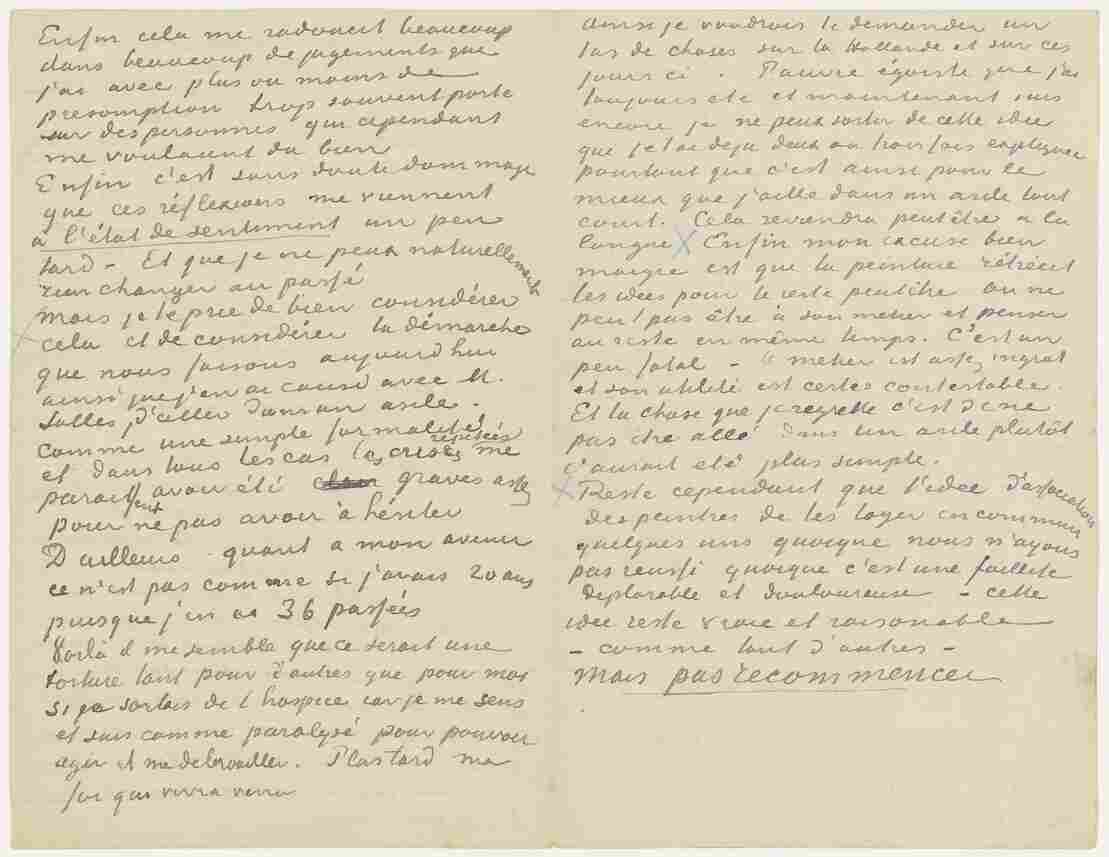 Enfin cela me radoucit beaucoup
dans beaucoup de jugements que
j'ai avec plus ou moins de
presomption trop souvent porté
sur des personnes qui cependant
me voulaient du bien
Enfin c'est sans doute dommage
que ces réflexions me viennent
à l'état de sentiment un peu
tard – Et que je ne peux naturellement
rien changer au passé
Mais je te prie de bien considérer
cela et de considérer la démarche
que nous faisons aujourd'hui
ainsi que j'en ai causé avec M.
Salles, d'aller dans un asile.
comme une simple formalité
et dans tous les cas les crises répétées me
paraissent avoir été graves assez
pour ne pas avoir à hésiter
D'ailleurs quant a mon avenir
ce n'est pas comme si j'avais 20 ans
puisque j'en ai 36 passées
Voilà il me semble que ce serait une
torture tant pour d'autres que pour moi
si je sortais de l'hospice car je me sens
et suis comme paralysé pour pouvoir
agir et me debrouiller. Plus tard ma
foi qui vivra verra
Ainsi je voudrais te demander un
tas de choses sur la Hollande et sur ces
jours ci. Pauvre égoiste que j'ai
toujours été et maintenant suis
encore je ne peux sortir de cette idée
que je t'ai deja deux ou trois fois expliquée
pourtant que c'est ainsi pour le
mieux que j'aille dans un asile tout
court. Cela reviendra peut être a la
longue X Enfin mon excuse bien
maigre est que la peinture rétrécit
les idées pour le reste peut être on ne
peut pas être à son metier et penser
au reste en même temps. C'est un
peu fatal – metier est assez ingrat
et son utilité est certes contestable.
Et la chose que je regrette c'est de ne
pas être allé dans un asile plutôt
c'aurait eté plus simple.
X Reste cependant que l'idée d'association
des peintres de les loger en commun
quelques uns quoique nous n'ayons
pas reussi quoique c'est une faillite
deplorable et douloureuse – cette
idée reste vraie et raisonable
– comme tant d'autres –
Mais pas recommencer